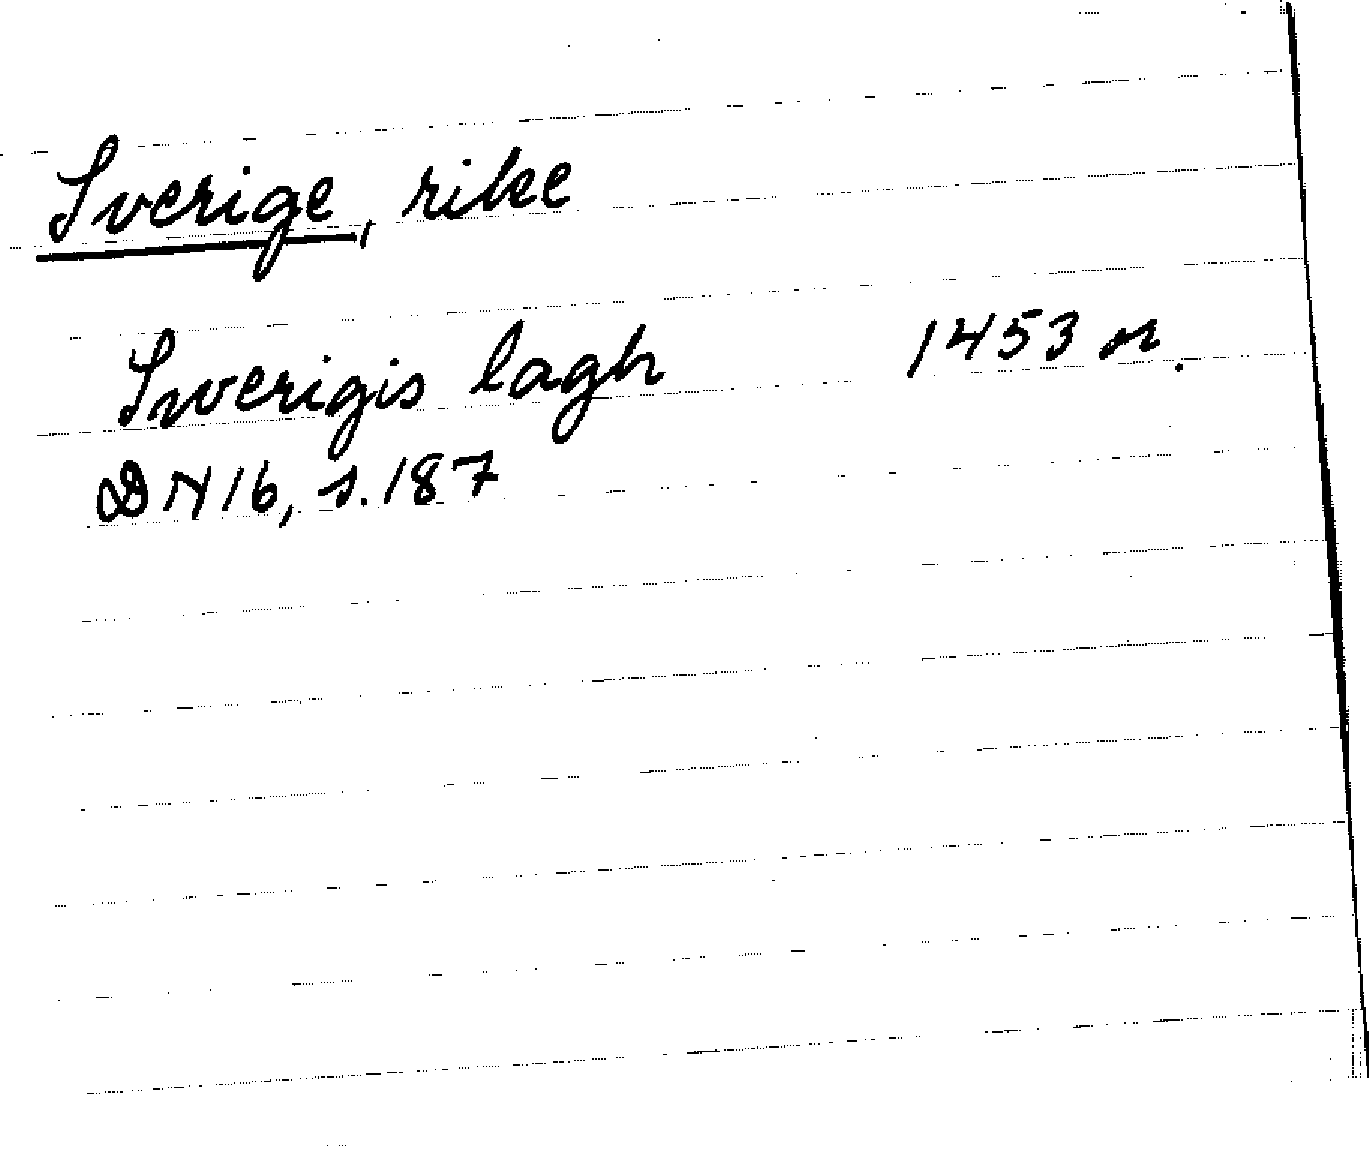 Sverige, rike
Swerigis lagh 1453 or.
DN 16, s. 187